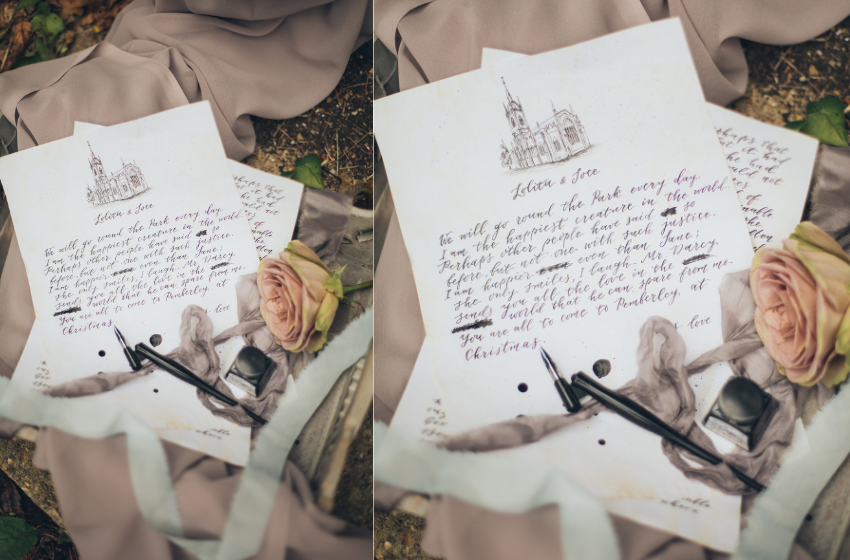 Lolita & Jose
We will go round the Park every day.
I am the happiest creature in the world.
Perhaps other people have said so
before, but not one with such justice.
I am happier even than Jane;
she only smiles, I laugh. Mr. Darcy
sends you all the love in the
world that he can spare from me.
You are all to come to Pemberley, at
Christmas.
love
that
it had
he had
not
where
Lolita & Jose
We will go round the Park every day.
I am the happiest creature in the world.
Perhaps other people have said so
before, but not one with such justice.
I am happier even than Jane;
she only smiles, I laugh. Mr. Darcy
sends you all the love in the
world that he can spare from me.
You are all to come to Pemberley, at
Christmas.
love
that
it had
he had
not
where